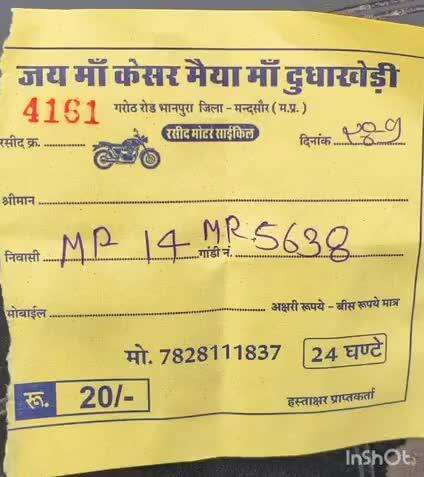 जय माँ केसर मैया माँ दुधाखेड़ी
4161 गरोठ रोड भानपुरा जिला - मन्दसौर ( म.प्र. )
रसीद क्र. रसीद मोटर साईकिल दिनांक
श्रीमान
निवासी MP 14 गांडी नं. MR 5638
मोबाईल अक्षरी रूपये - बीस रूपये मात्र
मो. 7828111837 24 घण्टे
रू. 20/- हस्ताक्षर प्राप्तकर्ता
InShOt